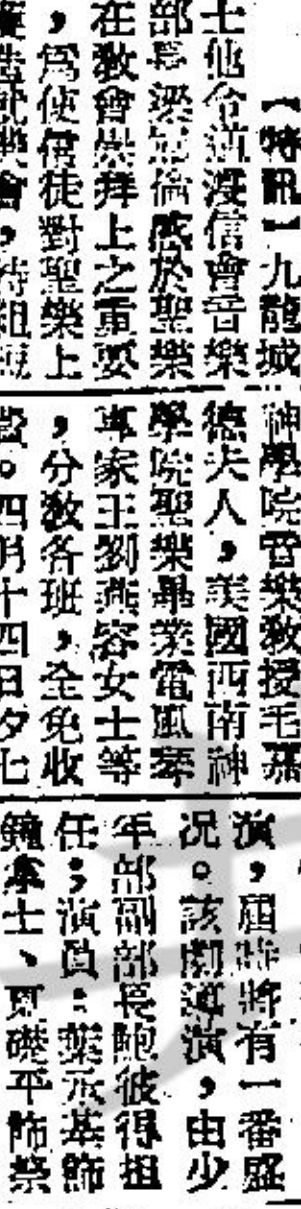 【特訊】九龍城
士他令道浸信會音樂
部長梁 倫感於聖樂
在敎會崇拜上之重要
，爲使信徒對聖樂上
神學院音樂敎授毛嘉
德夫人，美國西南神
學院聖樂畢業電風琴
專家王劉燕容女士等
，分敎各班，全免收
。四月十四日夕七
演，屆時將有一番盛
况。該劇 演，由少
年部副部長鮑彼得 
任；演員：葉 基飾
士、夏礎平飾祭